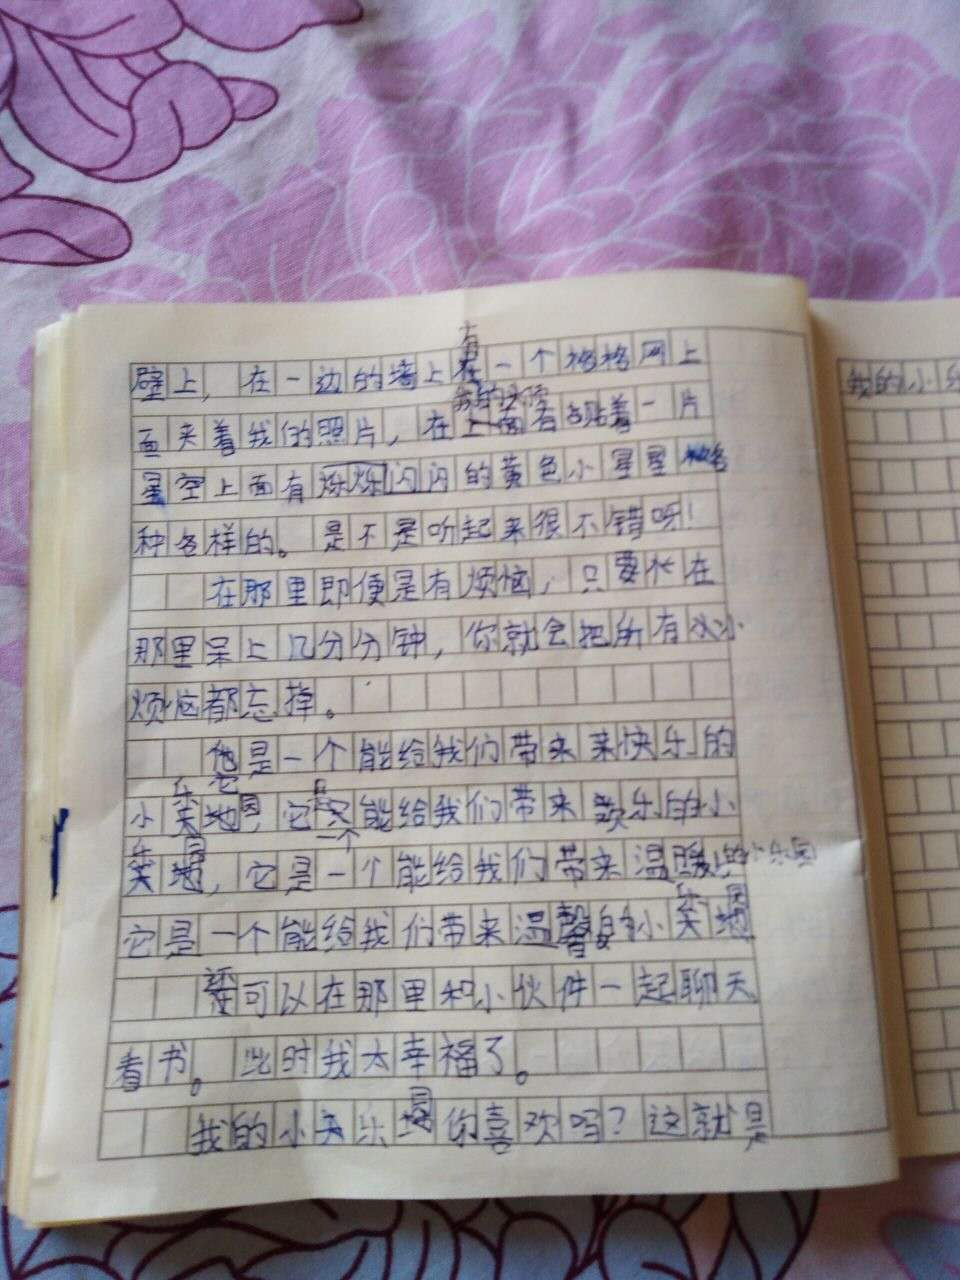 壁上，在一边的墙上有一个格格网上
面夹着我们的照片，在上面有贴着一片
星空上面有烁烁闪闪的黄色小星星
种各样的。是不是听起来很不错呀！
在那里即便是有烦恼，只要忙在
那里呆上几分分钟，你就会把所有大小
烦恼都忘掉。
它是一个能给我们带来来快乐的
小乐园，它是一个能给我们带来欢乐的小
乐园，它是一个能给我们带来温暖的小乐园
它是一个能给我们带来温馨的小乐园
还可以在那里和小伙件一起聊天
看书。此时我太幸福了。
我的小乐园你喜欢吗？这就是
我的小乐